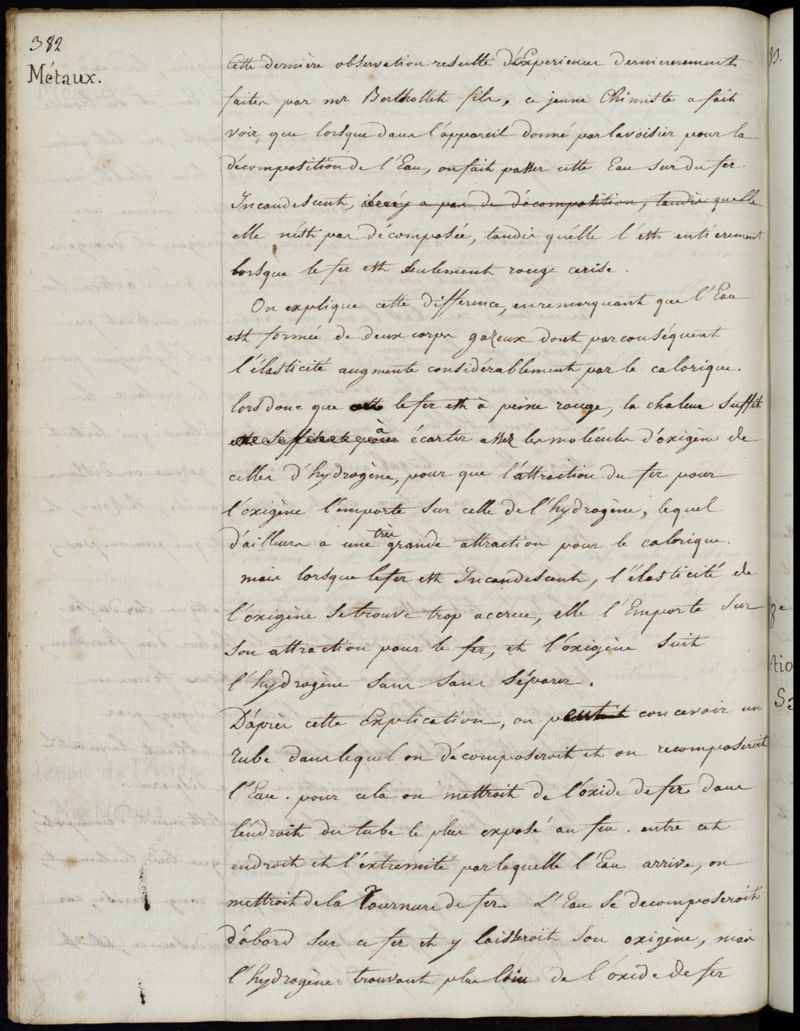 382
Métaux.
Cette dernière observation resulte d'Experiences dernierement
faites par mr Berthollet fils, ce jeune Chimiste a fait
voir que lorsque dans l'appareil donné par lavoisier pour la
décomposition de l'Eau, on fait passer cette Eau sur du fer
Incandescent, il n'y a pas de décomposition, tandis quelle
elle n'est pas décomposée, tandis quelle l'est entièrement
lorsque le fer est seulement rouge cerise.
On explique cette différence, en remarquant que l'Eau
est formée de deux corps gazeux dont par conséquent
l'élasticité augmente considérablement par le calorique.
lors donc que le fer est à peine rouge, la chaleur suffit
à écarter assez les molécules d'oxigène de
celles d'hydrogène, pour que l'attraction du fer pour
l'oxigène l'emporte sur celle de l'hydrogène, lequel
d'ailleurs a une très grande attraction pour le calorique.
mais lorsque le fer est Incandescent, l'élasticité de
l'oxigène se trouve trop accrue, elle l'Emporte sur
son attraction pour le fer, et l'oxigène suit
l'hydrogène sans sans séparer.
D'après cette Explication, on peut concevoir un
tube dans lequel on décomposeroit et on recomposeroit
l'Eau. pour cela on mettroit de l'oxide de fer dans
l'endroit du tube le plus exposé au feu. entre cet
endroit et l'extremité par laquelle l'Eau arrive, on
mettroit de la Tournure de fer. L'Eau se decomposeroit
d'abord sur ce fer et y laisseroit son oxigène, mais
l'hydrogène trouvant plus loin de l'oxide de fer